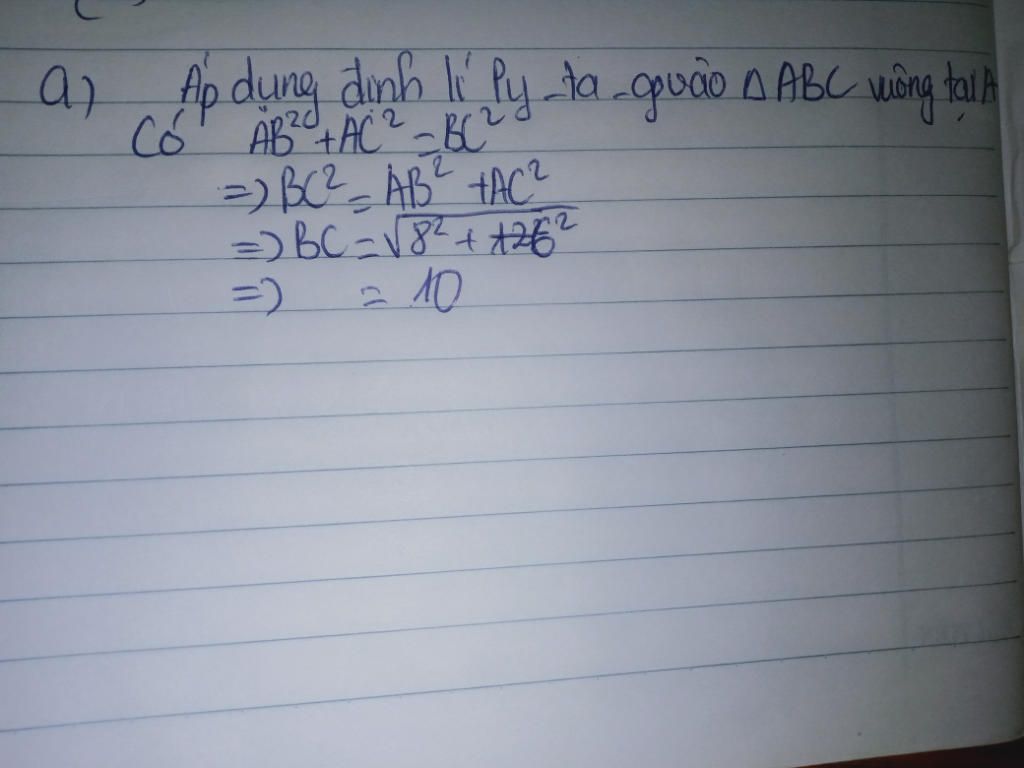 a) Áp dụng định lí Py-ta-go vào Δ ABC vuông tại A
Có AB² + AC² = BC²
=> BC² = AB² + AC²
=> BC = √8² + 6²
=> = 10